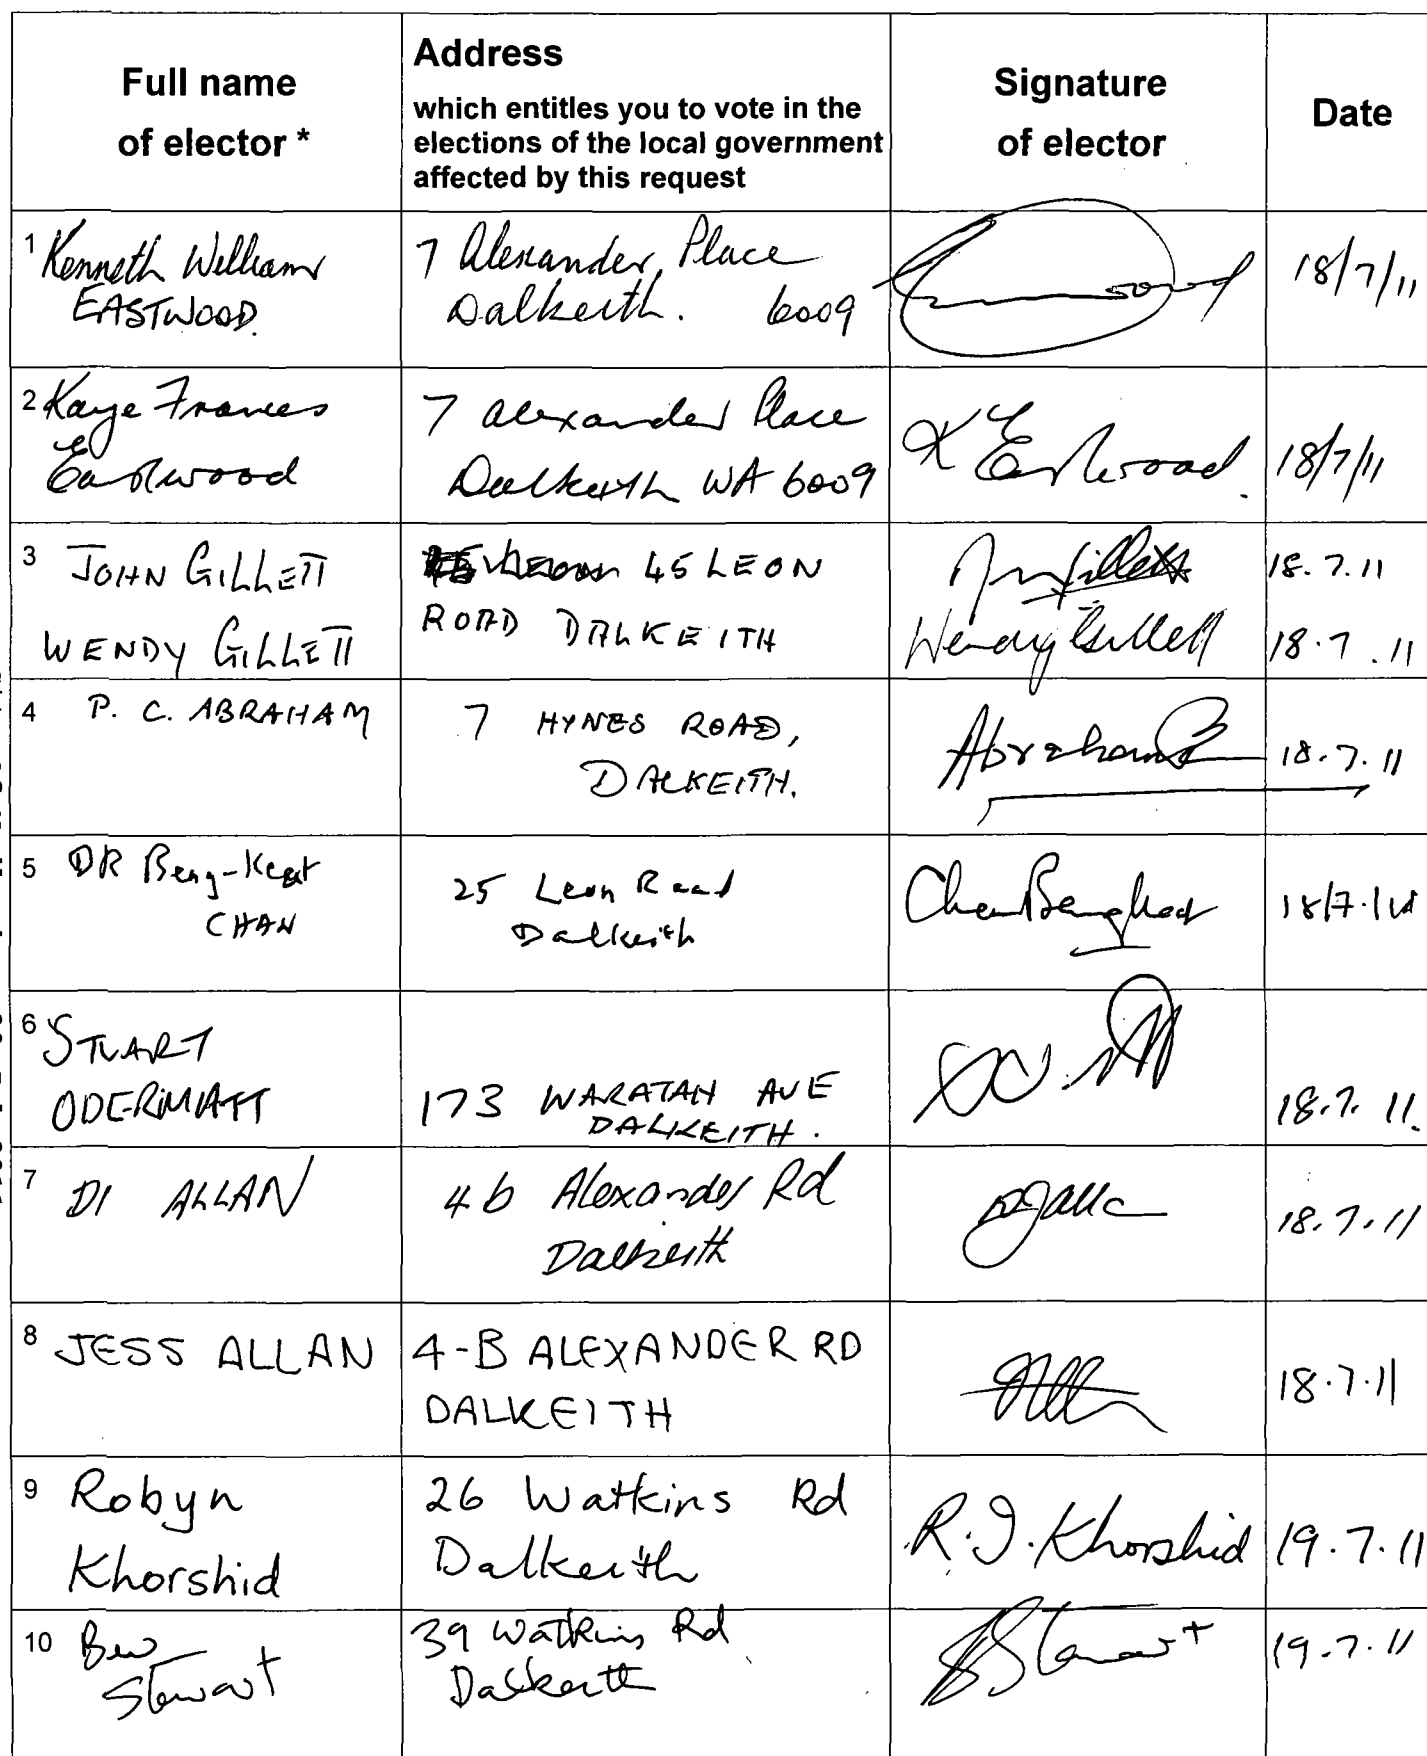 Full name
of elector *
Address
which entitles you to vote in the
elections of the local government
affected by this request
Signature
of elector
Date
1 Kenneth William
EASTWOOD.
7 Alexander Place
Dalkeith. 6009
18/7/11
2 Kaye Frances
Eastwood
7 Alexander Place
Dalkeith WA 6009
K Eastwood.
18/7/11
3 JOHN GILLETT
WENDY GILLETT
45 LEON
ROAD DALKEITH
Gillett
Wendy Gillett
18.7.11
18.7.11
4 P. C. ABRAHAM
7 HYNES ROAD,
DALKEITH.
Abraham
18.7.11
5 DR Beng-Keat
CHAN
25 Leon Road
Dalkeith
Chan Beng Keat
18/7.
6 STUART
ODERMATT
173 WARATAH AVE
DALKEITH.
18.7.11.
7 DI ALLAN
4b Alexander Rd
Dalkeith
18.7.11
8 JESS ALLAN
4-B ALEXANDER RD
DALKEITH
18.7.11
9 Robyn
Khorshid
26 Watkins Rd
Dalkeith
R.J. Khorshid
19.7.11
10 Bev
Stewart
39 Watkins Rd
Dalkeith
Stewart
19.7.11